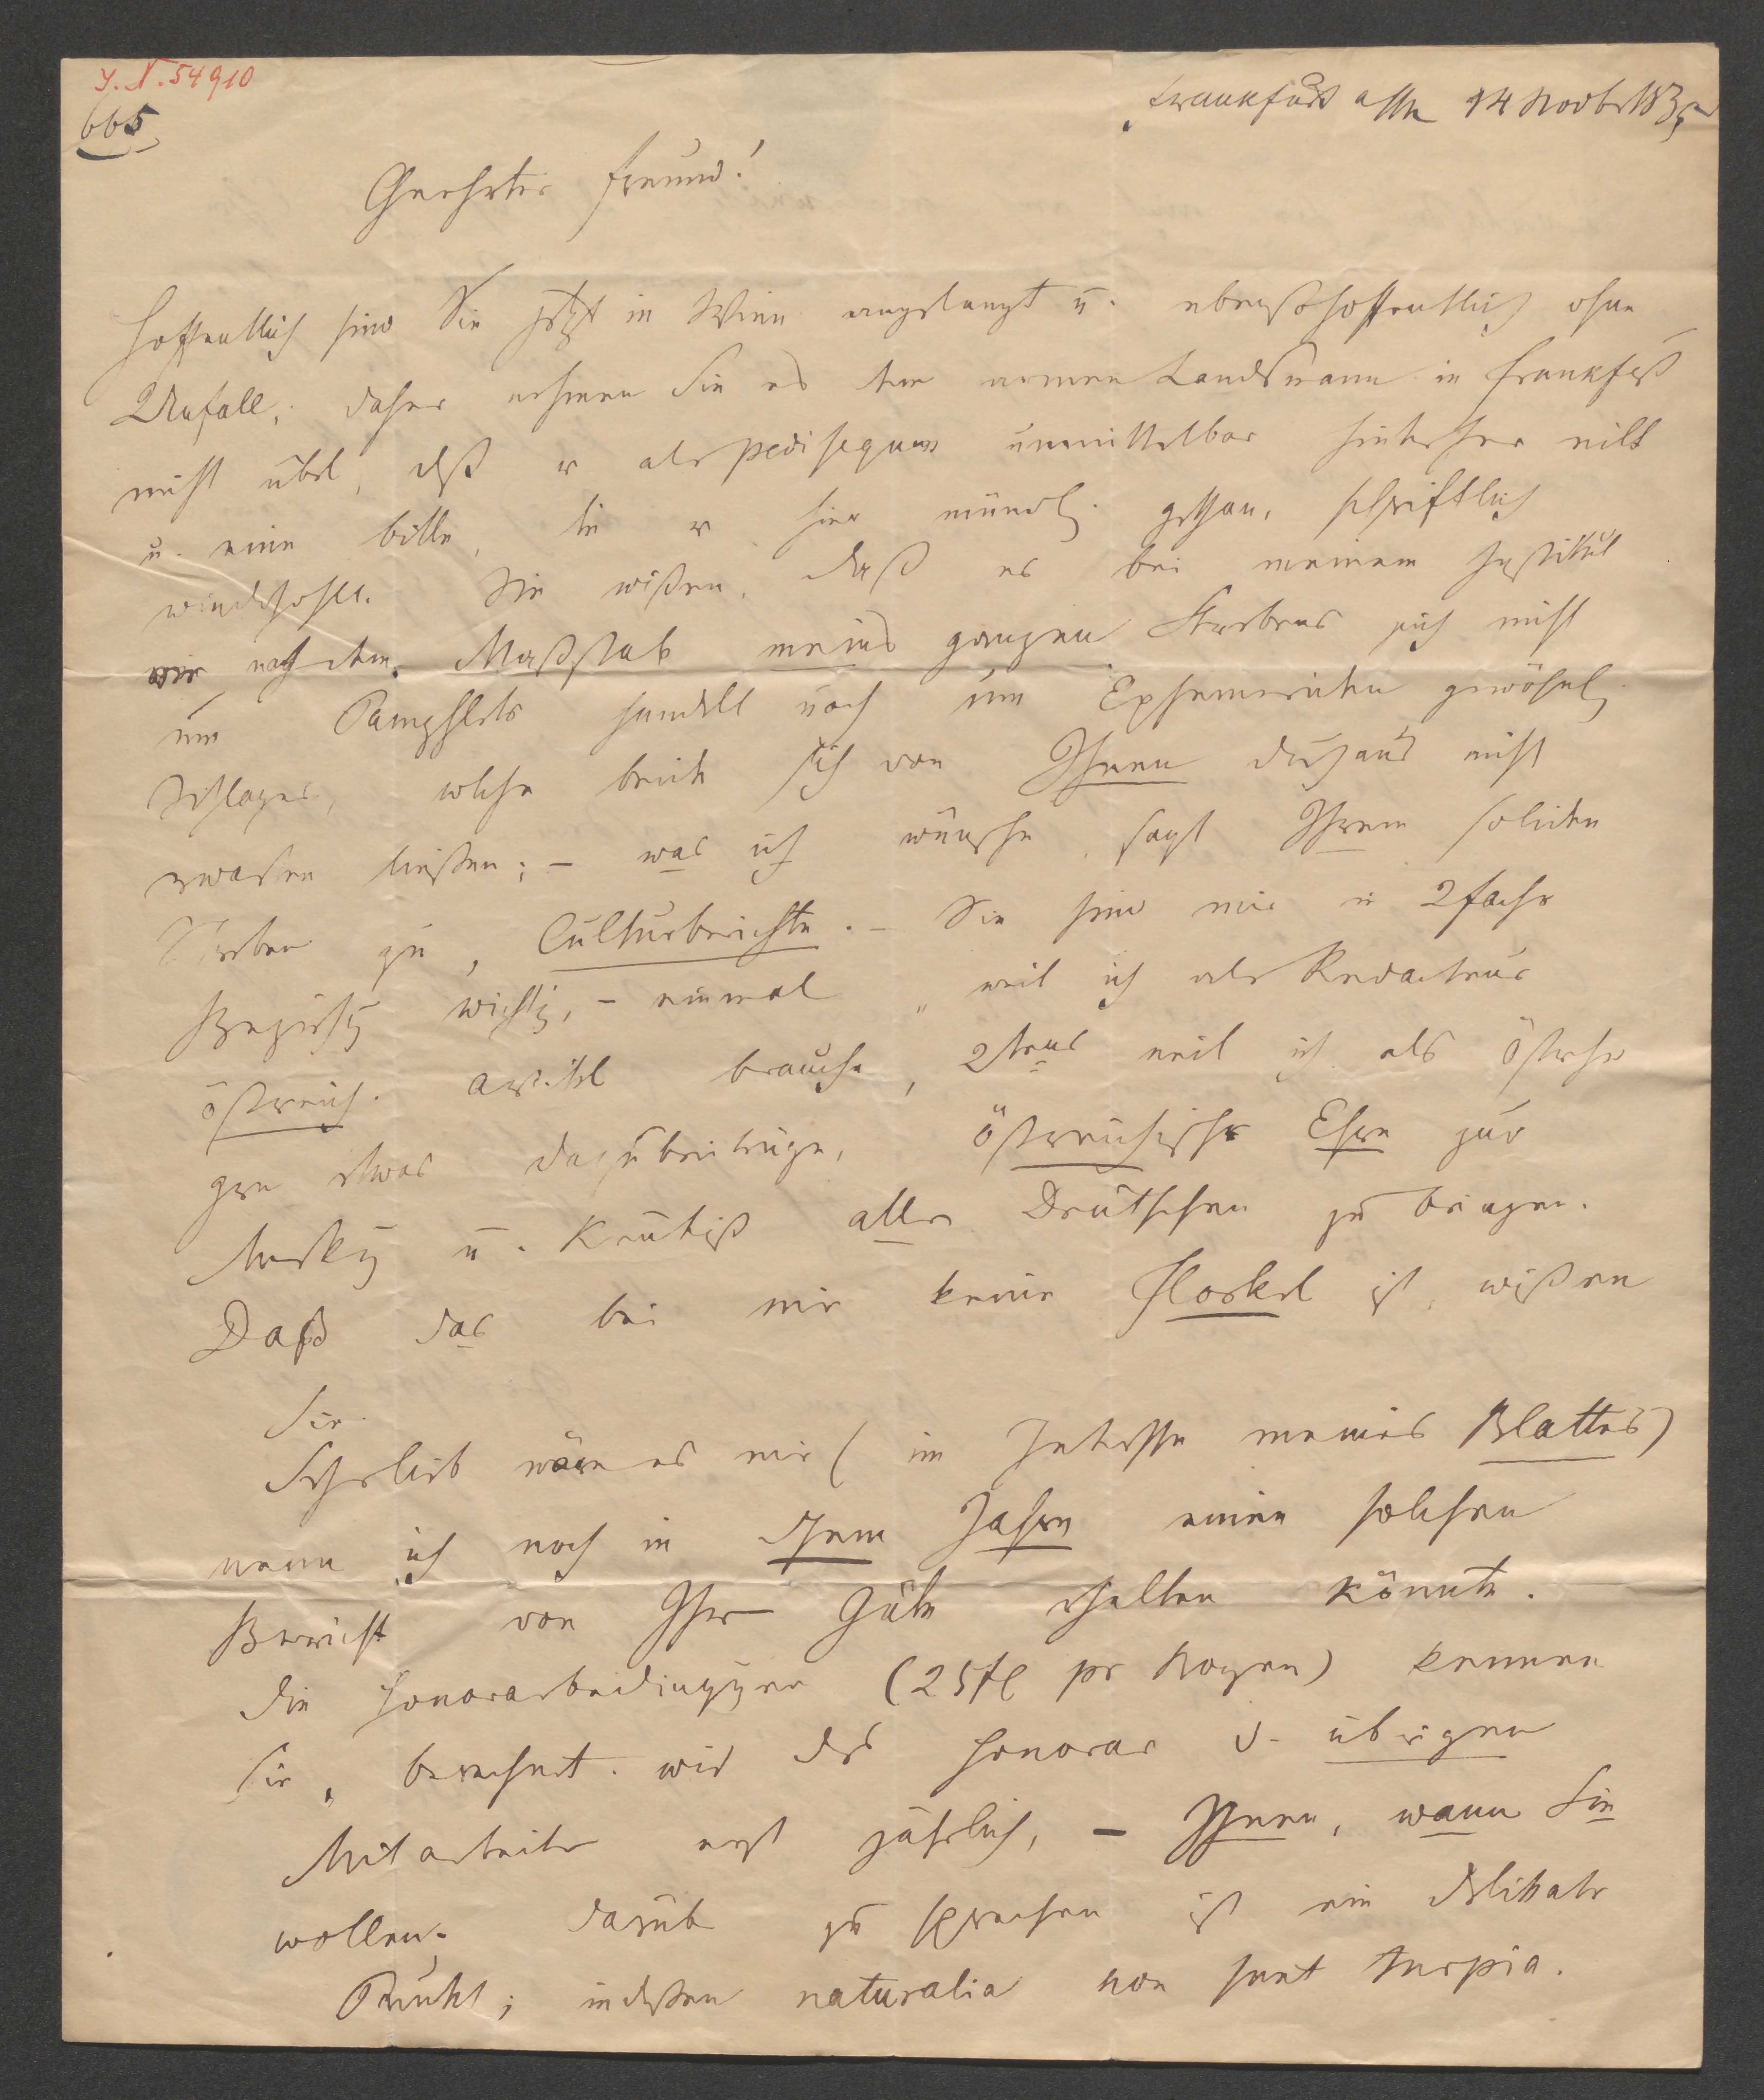 I. N. 54910
665
Frankfurt a/M 14 Novbr 183
Geehrter Freund!
Hoffentlich sind Sie jetzt in Wien angelangt u. ebenso hoffentlich ohne
Unfall, daher nehmen Sie es dem armen Landsmann in Frankfurt
nicht übel, daß er als pedisequus unmittelbar hinterher eilt
u. eine Bitte, die er hier mündl. gethan, schriftlich
wiederholt. Sie wißen, daß es bei meinem Institut
nach dem Maßstab meines ganzen Strebens sich nicht
um Pamphlets handelt noch um Ephemeriden gewöhnl.
Schlages, welche beide sich von Ihnen durchaus nicht
erwarten ließen; – was ich wünsche, sagt Ihrem soliden
Streben zu, Culturberichte. – Sie sind mir in 2facher
Beziehg wichtig, – einmal, weil ich als Redacteur
östreich. Artikel brauche, 2tens weil ich als Östreicher
gern etwas dazu beitrüge, östreichische Ehre zur
u. Kentniß aller Deutschen zu bringen.
Daß das bei mir keine Floskel ist, wißen
Sie.
Sehr lieb wäre es mir (im Interesse meines Blattes)
wenn ich noch in dsem Jahre einen solchen
Bericht von Ihrer Güte erhalten könnte.
Die Honorarbedinggen (25 fl pr Bogen) kennen
Sie, berechnet wird das Honorar d. übrigen
Mitarbeiter erst jährlich, – Ihnen, wann Sie
wollen. Darüber zu sprechen ist ein delikater
Punkt; indeßen naturalia non sunt turpia.